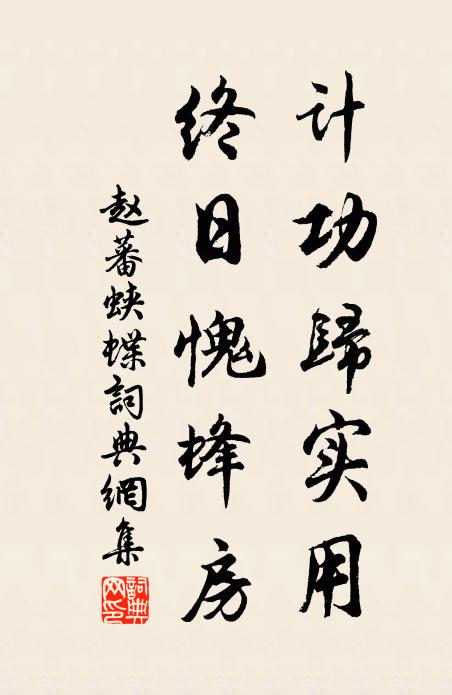 计功歸实用
终日愧蜂房
赵蕃蛱蝶詞典網集